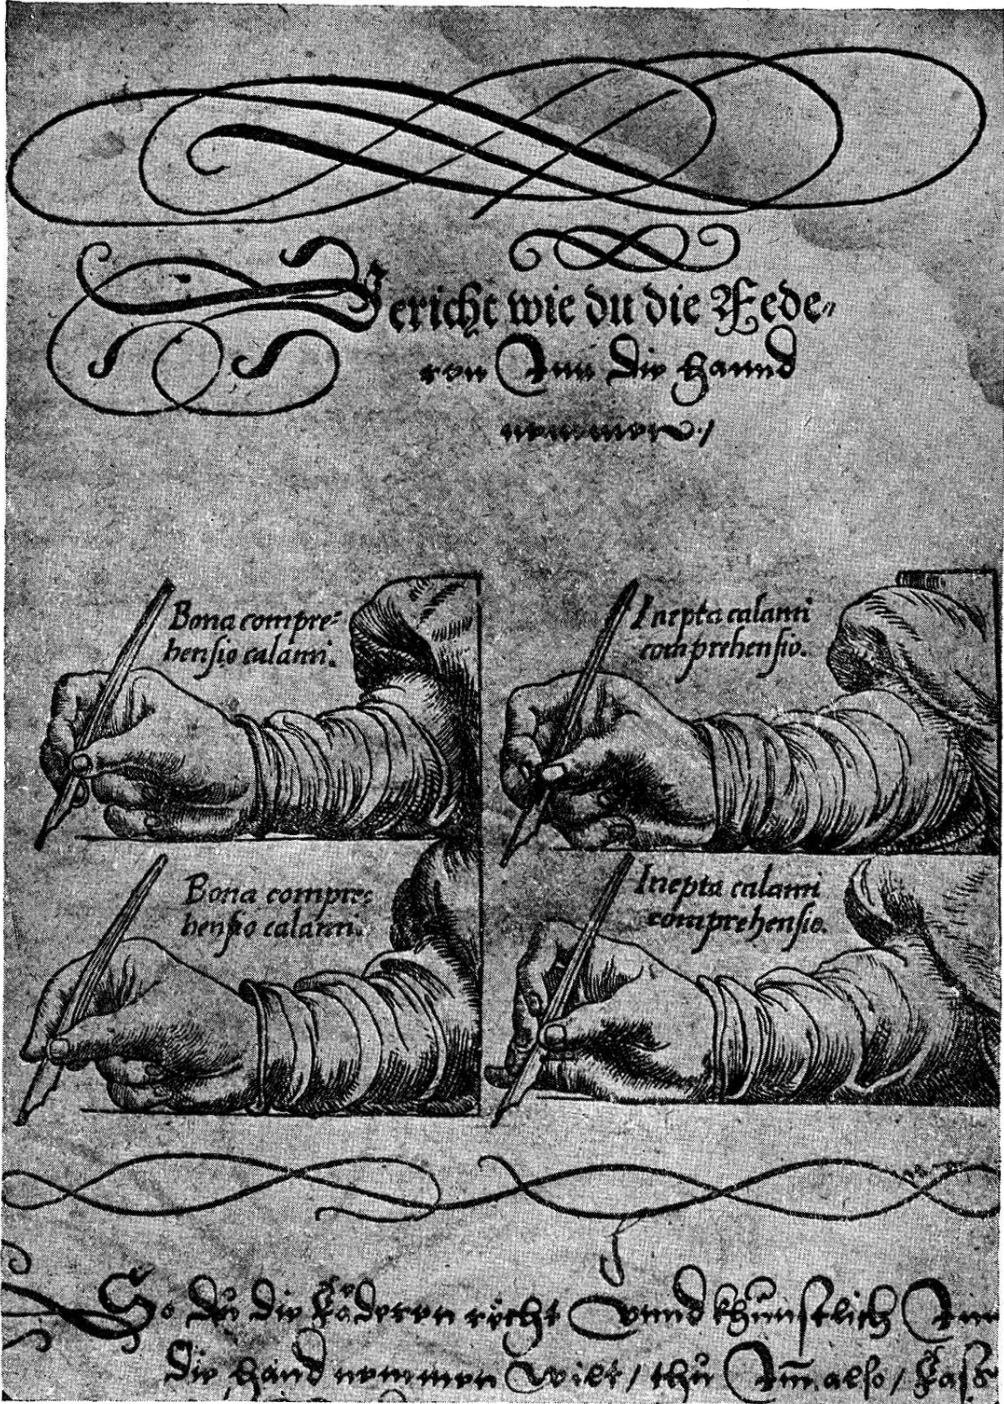 Bericht wie du die Fede⸗
ren Inn die hannd
nemmen /
Bona compre⸗
hensio calami.
Inepta calami
comprehensio.
Bona compre⸗
hensio calami.
Inepta calami
comprehensio.
So du die Fäderen rëcht Vnnd khünstlich Inn
die hand nemmen Wilt / thů Im̄ also / Fass